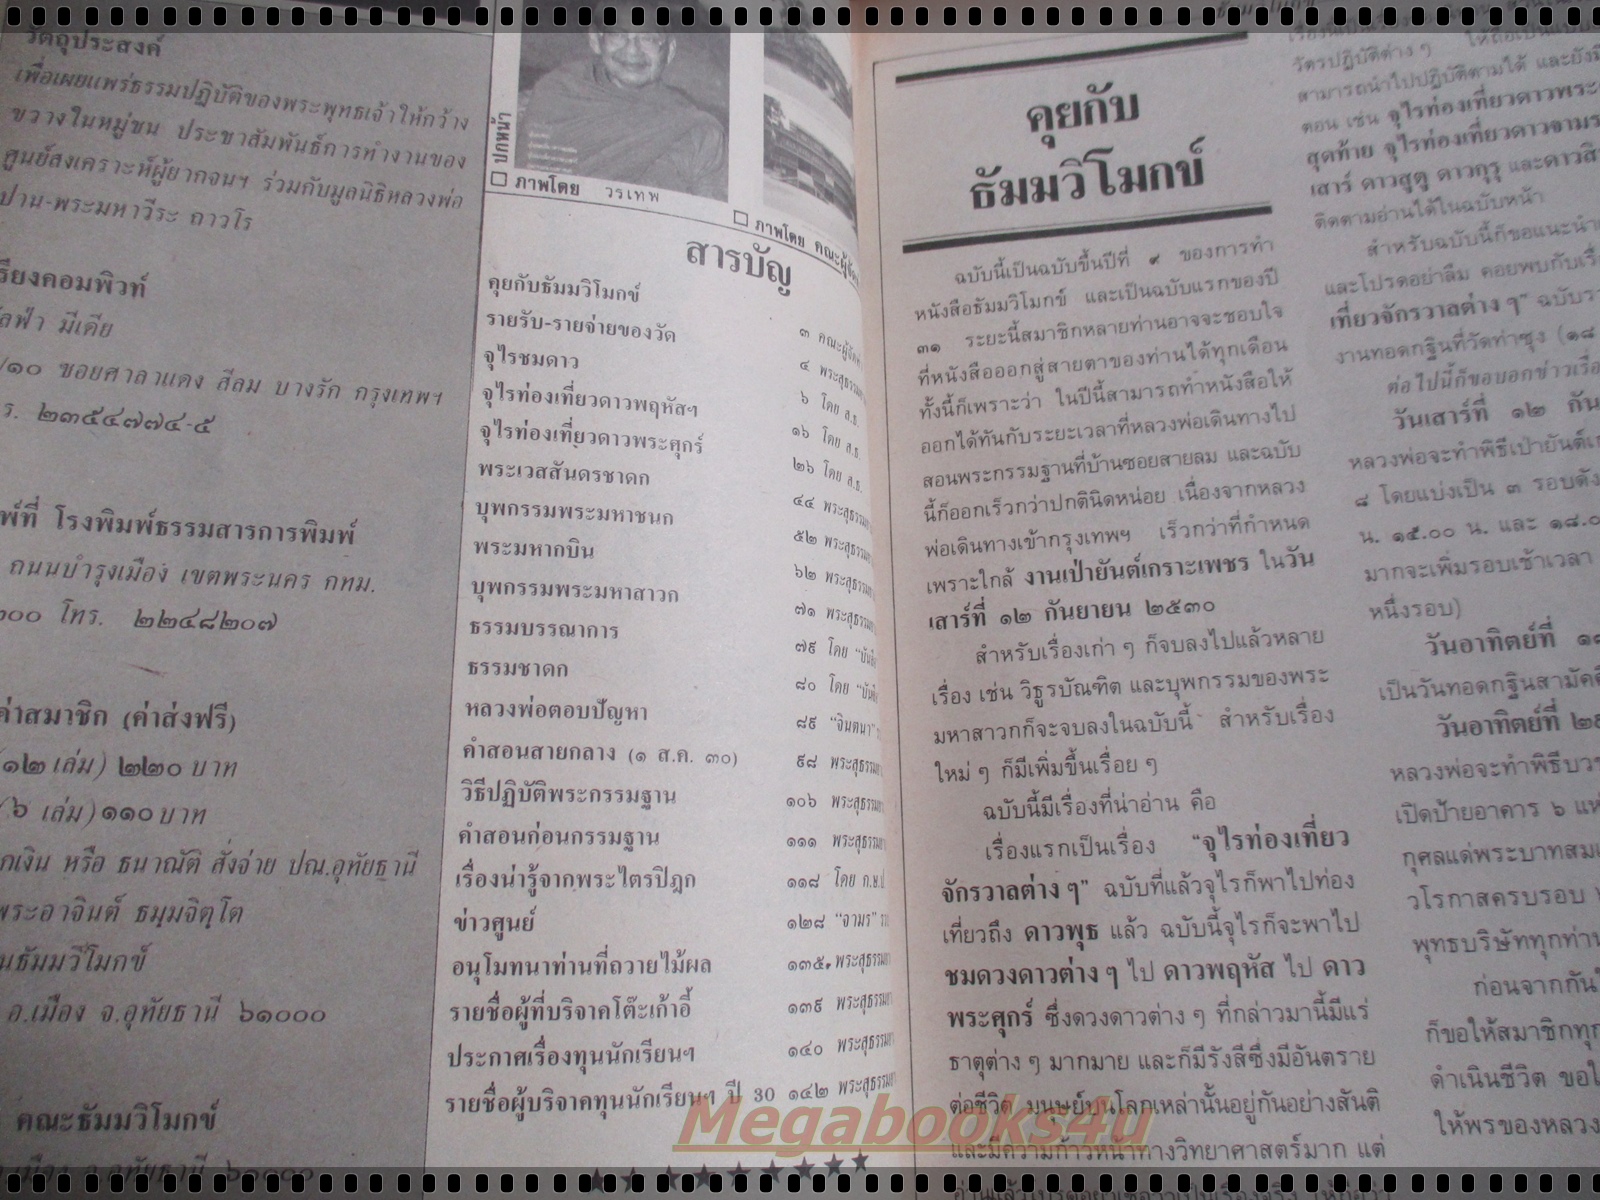 วัตถุประสงค์
เพื่อเผยแพร่ธรรมปฏิบัติของพระพุทธเจ้าให้กว้าง
ขวางในหมู่ชน ประชาสัมพันธ์การทำงานของ
ศูนย์สงเคราะห์ผู้ยากจนฯ ร่วมกับมูลนิธิหลวงพ่อ
ปาน-พระมหาวีระ ถาวโร
เรียงคอมพิวท์
มีเดีย
/๑๐ ซอยศาลาแดง สีลม บางรัก กรุงเทพฯ
ร. ๒๓๕๔๗๗๔-๕
พ์ที่ โรงพิมพ์ธรรมสารการพิมพ์
ถนนบำรุงเมือง เขตพระนคร กทม.
๐๐ โทร. ๒๒๔๘๒๐๗
ค่าสมาชิก (ค่าส่งฟรี)
(๑๒ เล่ม) ๒๒๐ บาท
(๖ เล่ม) ๑๑๐ บาท
กเงิน หรือ ธนาณัติ สั่งจ่าย ปณ.อุทัยธานี
พระอาจินต์ ธมฺมจิตฺโต
นธัมมวิโมกข์
อ.เมือง จ.อุทัยธานี ๖๑๐๐๐
คณะธัมมวิโมกข์
เมือง จ.อุทัยธานี ๖๑๐๐๐
ปกหน้า
ภาพโดย วรเทพ
ภาพโดย คณะผู้จัด
สารบัญ
คุยกับธัมมวิโมกข์ ๓ คณะผู้จัดทำ
รายรับ-รายจ่ายของวัด ๔ พระสุธรรม
จุไรชมดาว ๖ โดย ส.ธ.
จุไรท่องเที่ยวดาวพฤหัสฯ ๑๖ โดย ส.ธ.
จุไรท่องเที่ยวดาวพระศุกร์ ๒๖ โดย ส.ธ.
พระเวสสันดรชาดก ๔๔ พระสุธรรม
บุพกรรมพระมหาชนก ๕๒ พระสุธรรม
พระมหากบิน ๖๒ พระสุธรรม
บุพกรรมพระมหาสาวก ๗๑ พระสุธรรม
ธรรมบรรณาการ ๗๙ โดย
ธรรมชาดก ๘๐ โดย
หลวงพ่อตอบปัญหา ๘๙ "จินตนา"
คำสอนสายกลาง (๑ ส.ค. ๓๐) ๙๘ พระสุธรรม
วิธีปฏิบัติพระกรรมฐาน ๑๐๖ พระสุธรรม
คำสอนก่อนกรรมฐาน ๑๑๑ พระสุธรรม
เรื่องน่ารู้จากพระไตรปิฎก ๑๑๘ โดย ก.ษ.ป
ข่าวศูนย์ ๑๒๘ "จามร"
อนุโมทนาท่านที่ถวายไม้ผล ๑๓๕ พระสุธรรม
รายชื่อผู้ที่บริจาคโต๊ะเก้าอี้ ๑๓๙ พระสุธรรม
ประกาศเรื่องทุนนักเรียนฯ ๑๔๐ พระสุธรรม
รายชื่อผู้บริจาคทุนนักเรียนฯ ปี 30 ๑๔๒ พระสุธรรม
คุยกับ
ธัมมวิโมกข์
ฉบับนี้เป็นฉบับขึ้นปีที่ ๙ ของการทำ
หนังสือธัมมวิโมกข์ และเป็นฉบับแรกของปี
๓๑ ระยะนี้สมาชิกหลายท่านอาจจะชอบใจ
ที่หนังสือออกสู่สายตาของท่านได้ทุกเดือน
ทั้งนี้ก็เพราะว่า ในปีนี้สามารถทำหนังสือให้
ออกได้ทันกับระยะเวลาที่หลวงพ่อเดินทางไป
สอนพระกรรมฐานที่บ้านซอยสายลม และฉบับ
นี้ก็ออกเร็วกว่าปกตินิดหน่อย เนื่องจากหลวง
พ่อเดินทางเข้ากรุงเทพฯ เร็วกว่าที่กำหนด
เพราะใกล้ งานเป่ายันต์เกราะเพชร ในวัน
เสาร์ที่ ๑๒ กันยายน ๒๕๓๐
สำหรับเรื่องเก่า ๆ ก็จบลงไปแล้วหลาย
เรื่อง เช่น วิธูรบัณฑิต และบุพกรรมของพระ
มหาสาวกก็จะจบลงในฉบับนี้ สำหรับเรื่อง
ใหม่ ๆ ก็มีเพิ่มขึ้นเรื่อย ๆ
ฉบับนี้มีเรื่องที่น่าอ่าน คือ
เรื่องแรกเป็นเรื่อง "จุไรท่องเที่ยว
จักรวาลต่าง ๆ" ฉบับที่แล้วจุไรก็พาไปท่อง
เที่ยวถึง ดาวพุธ แล้ว ฉบับนี้จุไรก็จะพาไป
ชมดวงดาวต่าง ๆ ไป ดาวพฤหัส ไป ดาว
พระศุกร์ ซึ่งดวงดาวต่าง ๆ ที่กล่าวมานี้มีแร่
ธาตุต่าง ๆ มากมาย และก็มีรังสีซึ่งมีอันตราย
ต่อชีวิต มนุษย์บนโลกเหล่านั้นอยู่กันอย่างสันติ
และมีความก้าวหน้าทางวิทยาศาสตร์มาก แต่
วัตรปฏิบัติต่าง ๆ ให้ถือเป็นแบบ
สามารถนำไปปฏิบัติตามได้ และยังมี
ตอน เช่น จุไรท่องเที่ยวดาวพระ
สุดท้าย จุไรท่องเที่ยวดาวจามร
เสาร์ ดาวสูตู ดาวกุรุ และดาวสิ
ติดตามอ่านได้ในฉบับหน้า
สำหรับฉบับนี้ก็ขอแนะนำ
และโปรดอย่าลืม คอยพบกับเรื่
เที่ยวจักรวาลต่าง ๆ" ฉบับรา
งานทอดกฐินที่วัดท่าซุง (๑๘
ต่อไปนี้ก็ขอบอกข่าวเรื่
วันเสาร์ที่ ๑๒ กัน
หลวงพ่อจะทำพิธีเป่ายันต์เก
๘ โดยแบ่งเป็น ๓ รอบดัง
น. ๑๕.๐๐ น. และ ๑๘.๐
มากจะเพิ่มรอบเช้าเวลา
หนึ่งรอบ)
วันอาทิตย์ที่ ๑๘
เป็นวันทอดกฐินสามัคคี
วันอาทิตย์ที่ ๒๕
หลวงพ่อจะทำพิธีบวช
เปิดป้ายอาคาร ๖ แห่
กุศลแด่พระบาทสมเ
วโรกาสครบรอบ
พุทธบริษัททุกท่าน
ก่อนจากกันใ
ก็ขอให้สมาชิกทุก
ดำเนินชีวิต ขอใ
ให้พรของหลวง
Megabooks4u